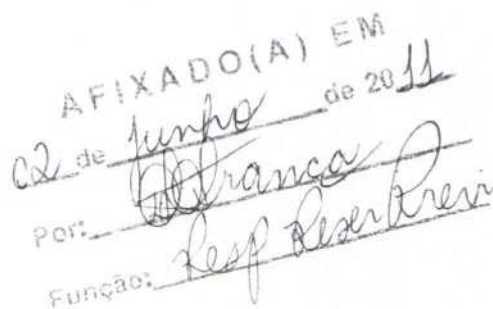 AFIXADO(A) EM
02 de junho de 2011
Por: França
Função: Resp Reser Previ